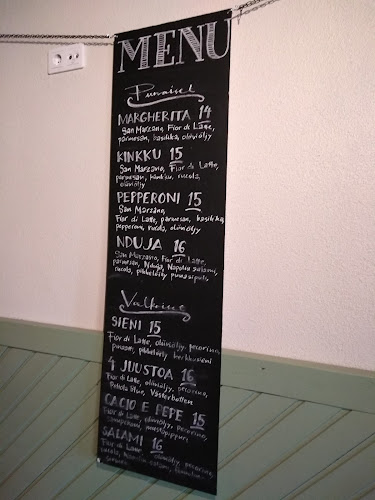 MENU
Punaiset
MARGHERITA 14
San Marzano, Fior di Latte,
parmesan, basilika, oliiviöljy
KINKKU 15
San Marzano, Fior di Latte,
parmesan, kinkku, rucola,
oliiviöljy
PEPPERONI 15
San Marzano,
Fior di Latte, parmesan, basilika,
pepperoni, rucola, oliiviöljy
NDUJA 16
San Marzano, Fior di Latte,
parmesan, Nduja, Napoli salami,
rucola, pikkelöity punasipuli
Valkoiset
SIENI 15
Fior di Latte, oliiviöljy, pecorino,
pikkelöity herkkusieni
4 JUUSTOA 16
Fior di Latte, oliiviöljy, pecorino,
Peltola Blue, Västerbotten
CACIO E PEPE 15
Fior di Latte, oliiviöljy, pecorino,
mustapippuri
SALAMI 16
Fior di Latte, oliiviöljy, pecorino,